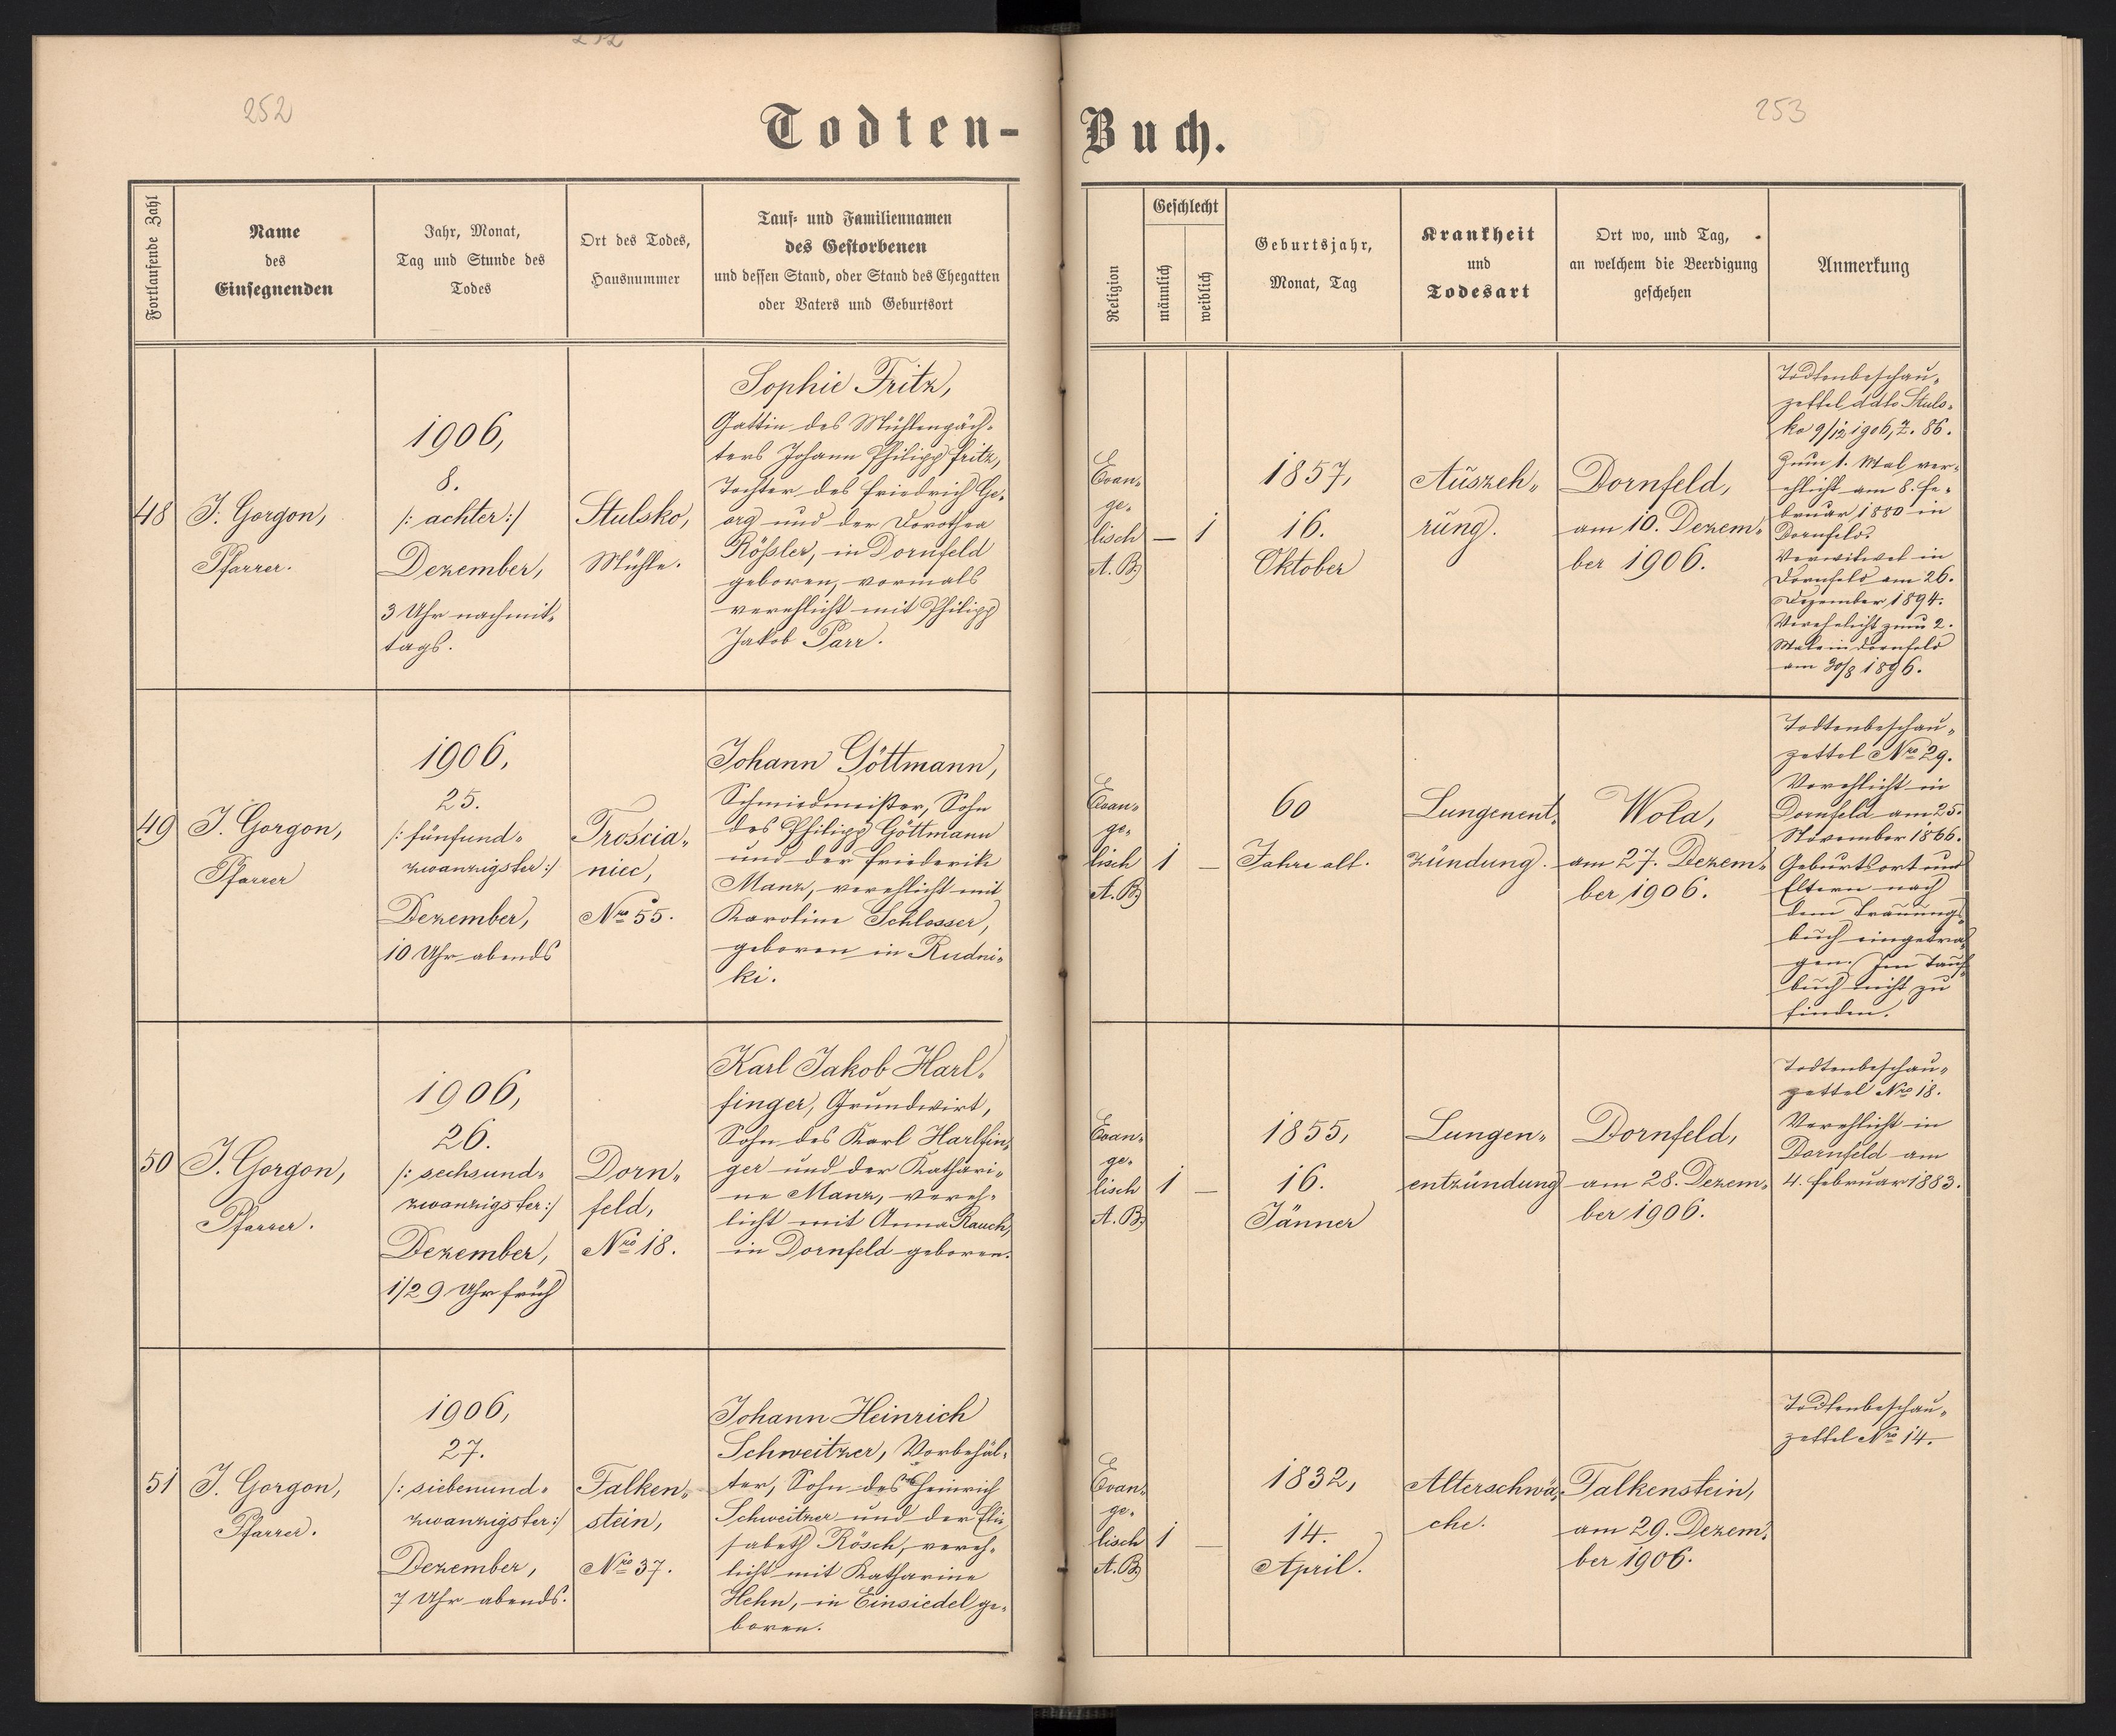 252
253
Todten-Buch.
Fortlaufende Zahl
Name
des
Einsegnenden
Jahr, Monat,
Tag und Stunde des
Todes
Ort des Todes,
Hausnummer
Tauf- und Familiennamen
des Gestorbenen
und dessen Stand, oder Stand des Ehegatten
oder Vaters und Geburtsort
Religion
Geschlecht
männlich
weiblich
Geburtsjahr,
Monat, Tag
Krankheit
und
Todesart
Ort wo, und Tag,
an welchem die Beerdigung
geschehen
Anmerkung
48
J. Gorgon,
Pfarrer.
1906,
8.
/: achter :/
Dezember,
3 Uhr nachmit-
tags.
Stulsko,
Mühle.
Sophie Fritz,
Gattin des Mühlenpäch-
ters Johann Philipp Fritz,
Tochter des Friedrich Ge-
org und der Dorothea
Rößler, in Dornfeld
geboren, vormals
verehlicht mit Philipp
Jakob Parr.
Evan-
ge-
lisch
A. B.
— 1
1857,
16.
Oktober
Auszeh-
rung.
Dornfeld,
am 10. Dezem-
ber 1906.
Todtenbeschau-
zettel ddto Stuls-
ko 9/12 1906, Z. 86.
Zum 1. Mal ver-
ehlicht am 8. Fe-
bruar 1880 in
Dornfeld.
Verwitwet in
Dornfeld am 26.
Dezember 1894.
Verehelicht zum 2.
Male in Dornfeld
am 30/8 1896.
49
J. Gorgon,
Pfarrer
1906,
25.
/: fünfund-
zwanzigster :/
Dezember,
10 Uhr abends
Troscia-
niec,
Nro 55.
Johann Göttmann,
Schmiedmeister, Sohn
des Philipp Göttmann
und der Friederik
Manz, verehlicht mit
Karoline Schlosser,
geboren in Rudni-
ki.
Evan-
ge-
lisch
A. B.
1 —
60
Jahre alt.
Lungenent-
zündung.
Wola,
am 27. Dezem-
ber 1906.
Todtenbeschau-
zettel Nro 29.
Verehlicht in
Dornfeld am 25.
November 1866.
Geburtsort und
Eltern nach
dem Trauungs-
buch eingetra-
gen. Im Tauf-
buch nicht zu
finden.
50
J. Gorgon,
Pfarrer.
1906,
26.
/: sechsund-
zwanzigster :/
Dezember,
1/2 9 Uhr früh
Dorn-
feld,
Nro 18.
Karl Jakob Harl-
finger, Grundwirt,
Sohn des Karl Harlfin-
ger und der Kathari-
ne Manz, vereh-
licht mit Anna Rauch,
in Dornfeld geboren.
Evan-
ge-
lisch
A. B.
1 —
1855,
16.
Jänner
Lungen-
entzündung
Dornfeld,
am 28. Dezem-
ber 1906.
Todtenbeschau-
zettel Nro 18.
Verehlicht in
Dornfeld am
4. Februar 1883.
51
J. Gorgon,
Pfarrer.
1906,
27.
/: siebenund-
zwanzigster :/
Dezember,
7 Uhr abends.
Falken-
stein,
Nro 37.
Johann Heinrich
Schweitzer, Vorbehäl-
ter, Sohn des Heinrich
Schweitzer und der Eli-
sabeth Rösch, vereh-
licht mit Katharine
Hehn, in Einsiedel ge-
boren.
Evan-
ge-
lisch
A. B.
1 —
1832,
14.
April.
Alterschwä-
che.
Falkenstein,
am 29. Dezem-
ber 1906.
Todtenbeschau-
zettel Nro 14.